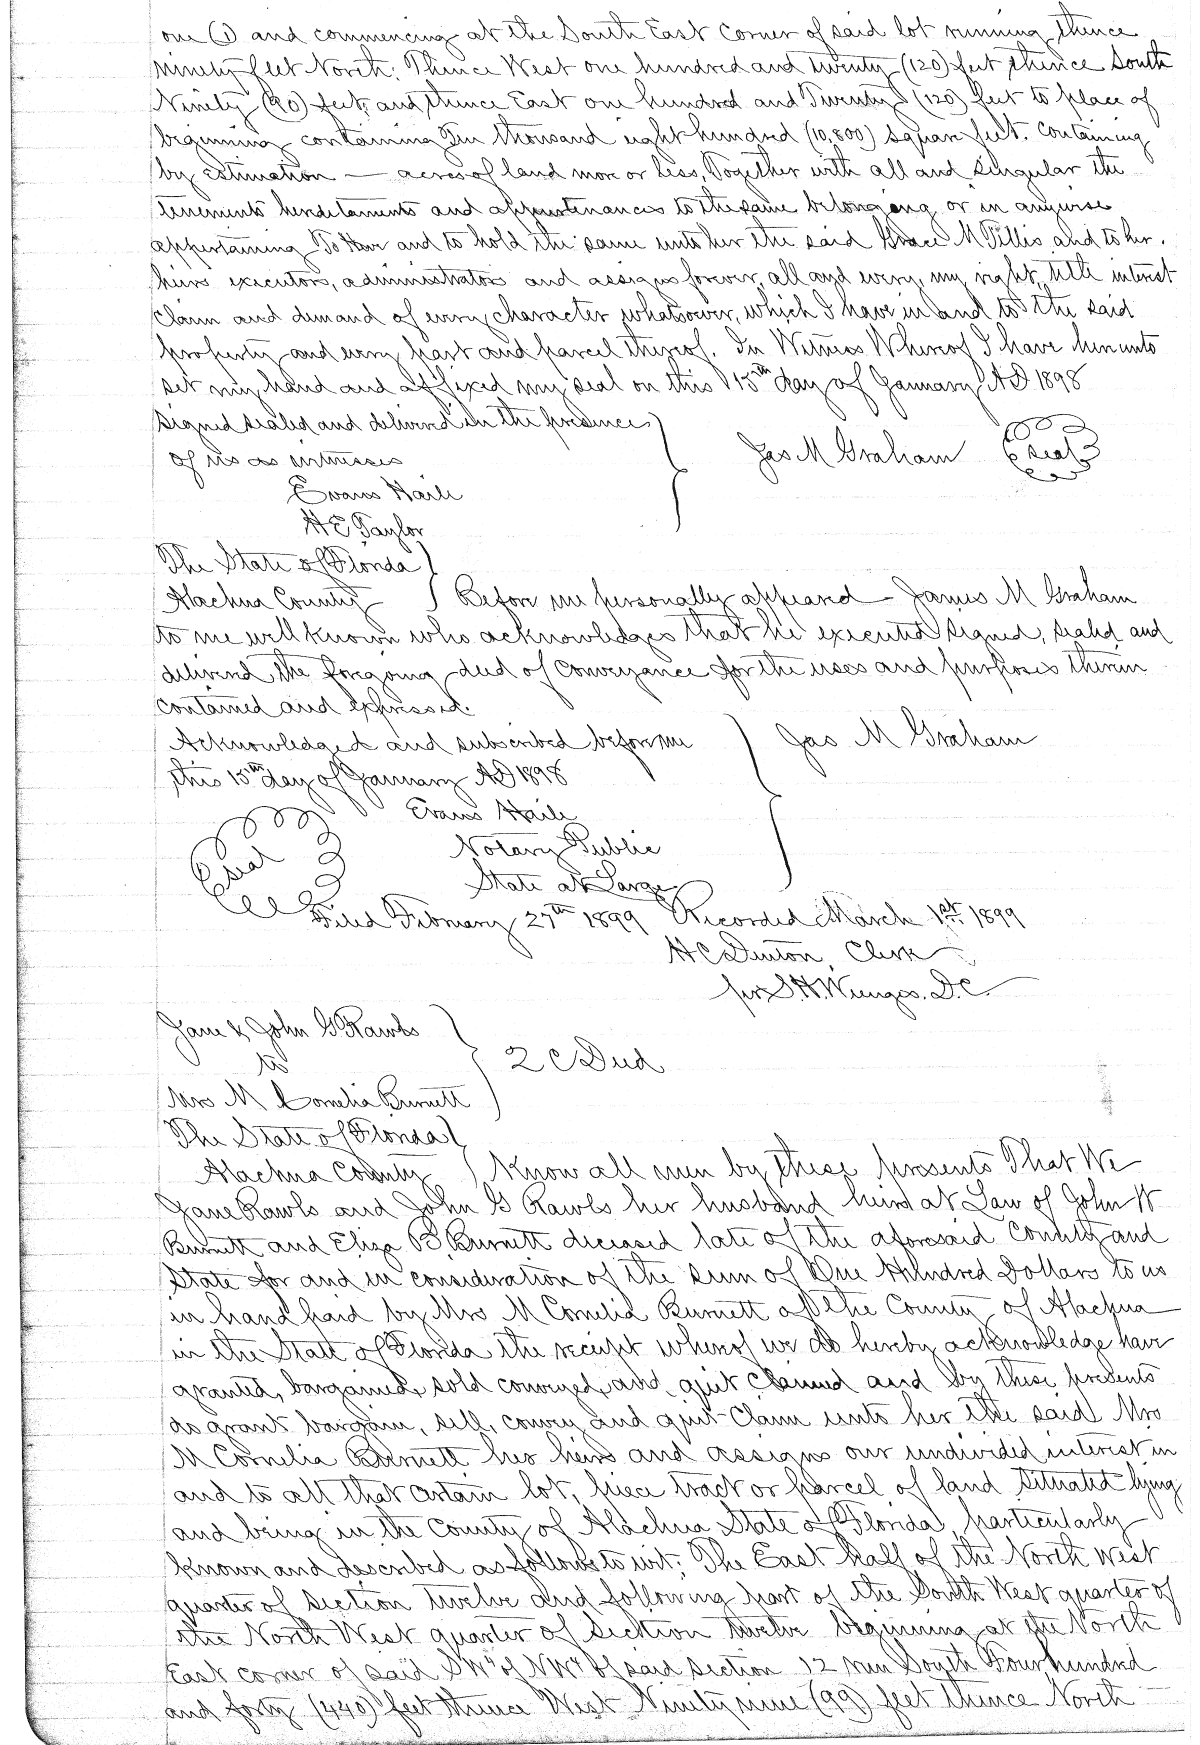 one (1) and commencing at the South East Corner of said lot running thence
ninety feet North, Thence West one hundred and twenty (120) feet thence South
Ninety (90) feet, and thence East one hundred and Twenty (120) feet to place of
beginning containing Ten thousand eight hundred (10,800) Square feet. Containing
by Estimation — acres of land more or less, Together with all and singular the
tenements hereditaments and appurtenances to the same belonging or in anywise
appertaining To Have and to hold the same unto her the said Grace M Tillis and to her
heirs executors, administrators and assigns forever, all and every, my right, title interest
Claim and demand of every character whatsoever, which I have in and to the said
property and every part and parcel thereof. In Witness Whereof I have hereunto
set my hand and affixed my seal on this 15th day of January AD 1898
Signed sealed and delivered in the presence
of us as witnesses
Jas M Graham Seal
Evans Haile
H E Taylor
The State of Florida
Alachua County Before me personally appeared James M Graham
to me well known who acknowledges that he executed signed, sealed and
delivered the foregoing deed of Conveyance for the uses and purposes therein
contained and expressed.
Acknowledged and subscribed before me Jas M Graham
this 15th day of January AD 1898
Evans Haile
Seal Notary Public
State at Large
Filed February 27th 1899 Recorded March 1st 1899
H C Denton, Clerk
per S.H. D.C.
Jane & John G Rawls
to
2 C Deed
Mrs M Cornelia Burnett
The State of Florida
Alachua County Know all men by these presents That We
Jane Rawls and John G Rawls her husband heirs at Law of John W
Burnett and Eliza B Burnett deceased late of the aforesaid County and
State for and in consideration of the sum of One Hundred Dollars to us
in hand paid by Mrs M Cornelia Burnett of the County of Alachua
in the State of Florida the receipt whereof we do hereby acknowledge have
granted, bargained, sold conveyed, and quit claimed and by these presents
do grant bargain, sell, convey and quit-Claim unto her the said Mrs
M Cornelia Burnett her heirs and assigns our undivided interest in
and to all that certain lot, piece tract or parcel of land situated lying
and being in the County of Alachua State of Florida, particularly
known and described as follows to wit; The East half of the North West
quarter of Section twelve and following part of the South West quarter of
the North West quarter of Section twelve beginning at the North
East corner of said SW¼ of NW¼ of said Section 12 run South Four hundred
and forty (440) feet thence West Ninety nine (99) feet thence North